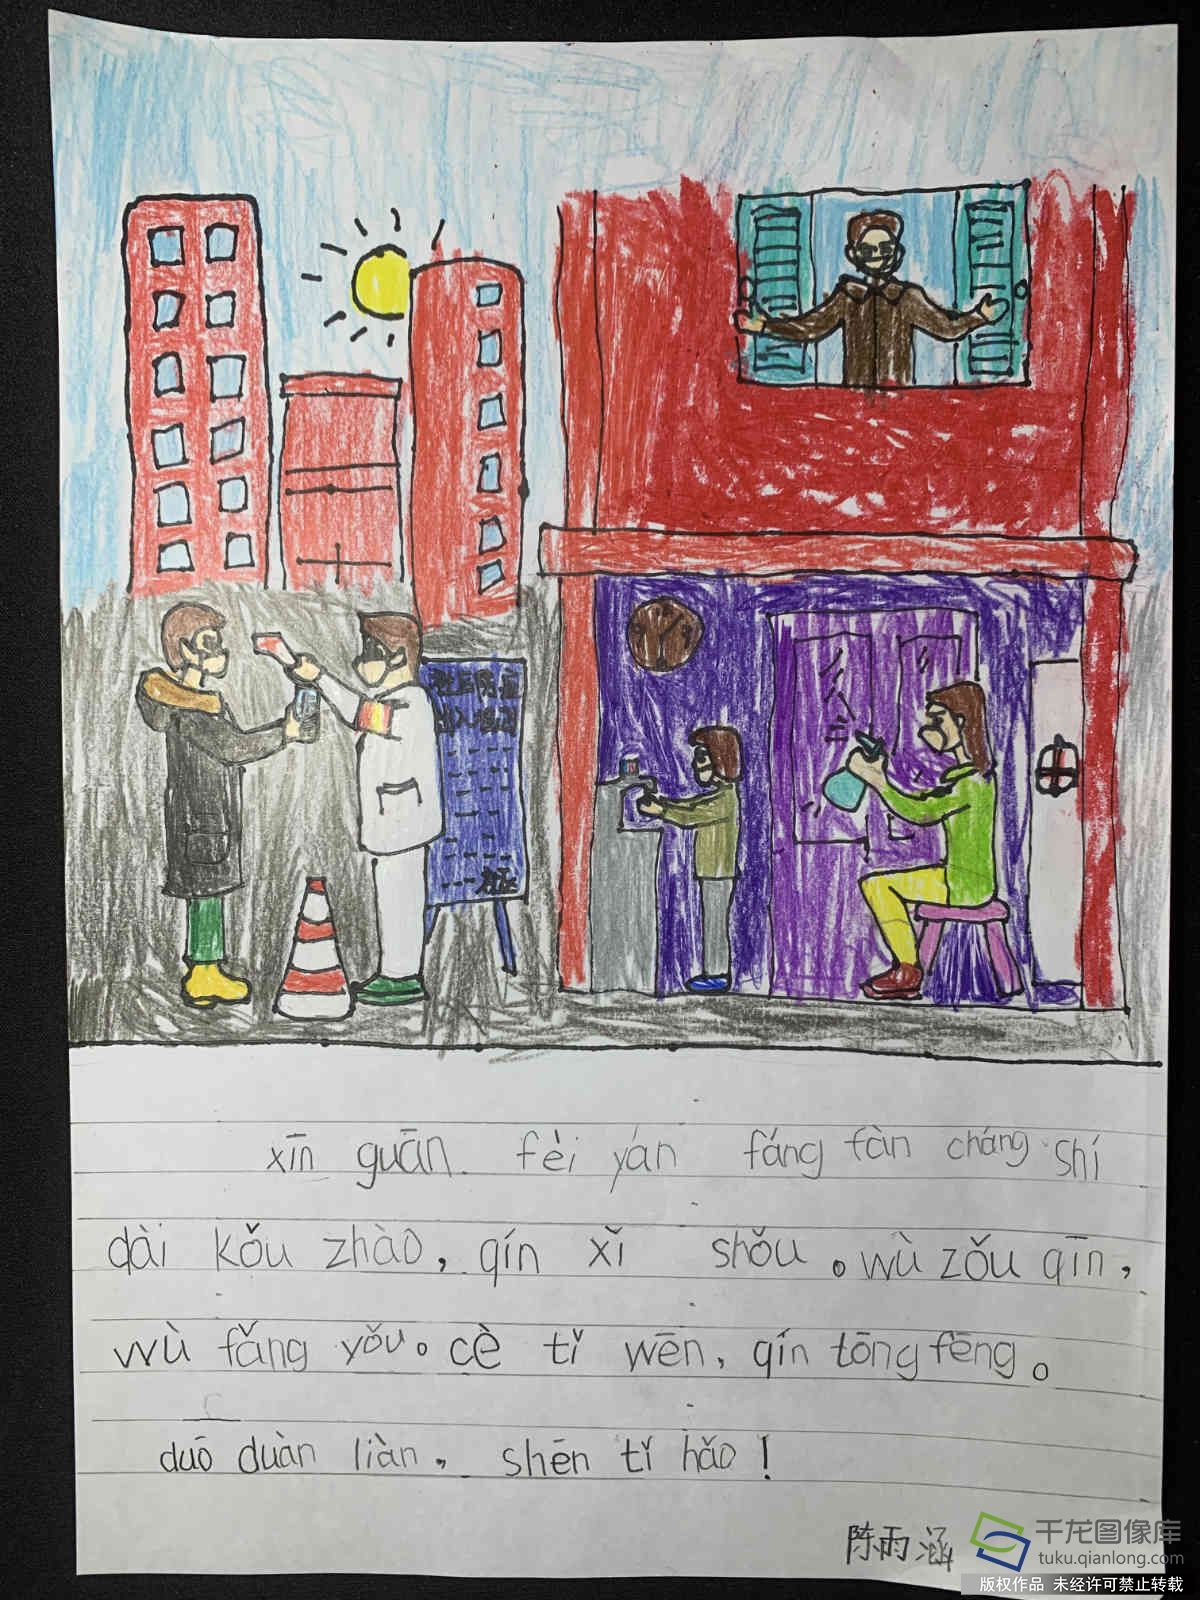 xīn guān fèi yán fáng fàn cháng shí
dài kǒu zhào, qín xǐ shǒu。wù zǒu qīn,
wù fǎng yǒu。cè tǐ wēn, qín tōng fēng。
duō duàn liàn, shēn tǐ hǎo!
陈雨涵
千龙图像库
tuku.qianlong.com
版权作品 未经许可禁止转载